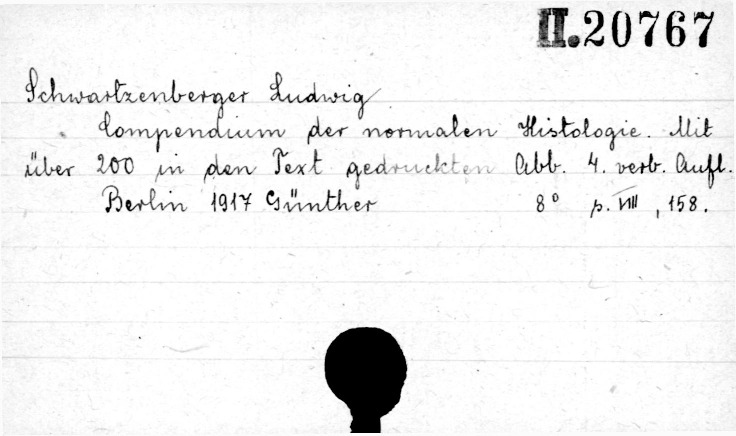 II.20767
Schwartzenberger Ludwig
Compendium der normalen Histologie. Mit
über 200 in den Text gedruckten Abb. 4. verb. Aufl.
Berlin 1917 Günther 8° p. VIII, 158.